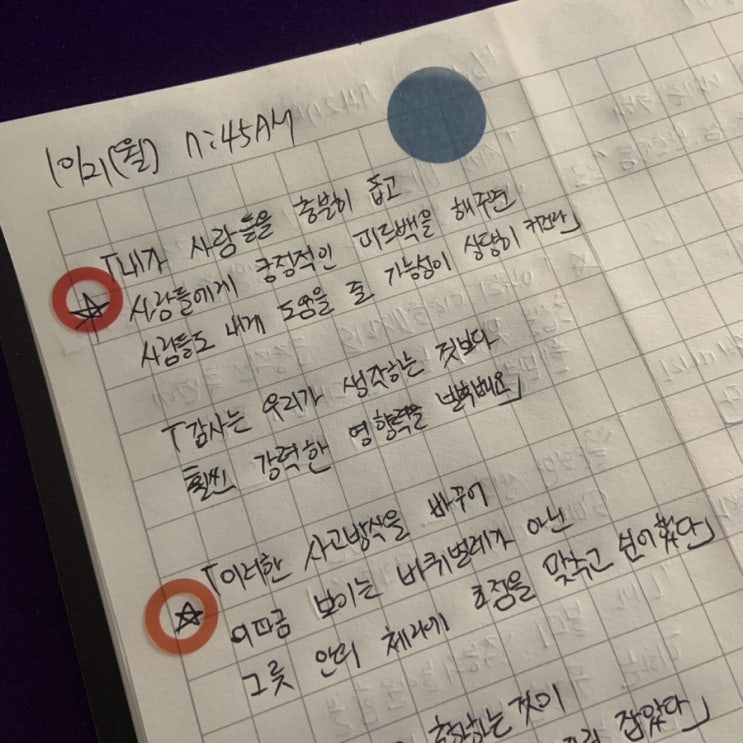 10/21(월) 11:45AM
「내가 사람들을 충분히 돕고
사람들에게 긍정적인 피드백을 해주면
사람들도 내게 도움을 줄 가능성이 상당히 커진다」
「감사는 우리가 생각하는 것보다
훨씬 강력한 영향력을 발휘해요」
「이러한 사고방식을 바꾸어
이따금 보이는 바퀴벌레가 아닌
그릇 안의 체리에 초점을 맞추고 싶어졌다」
하는것이
잡았다」